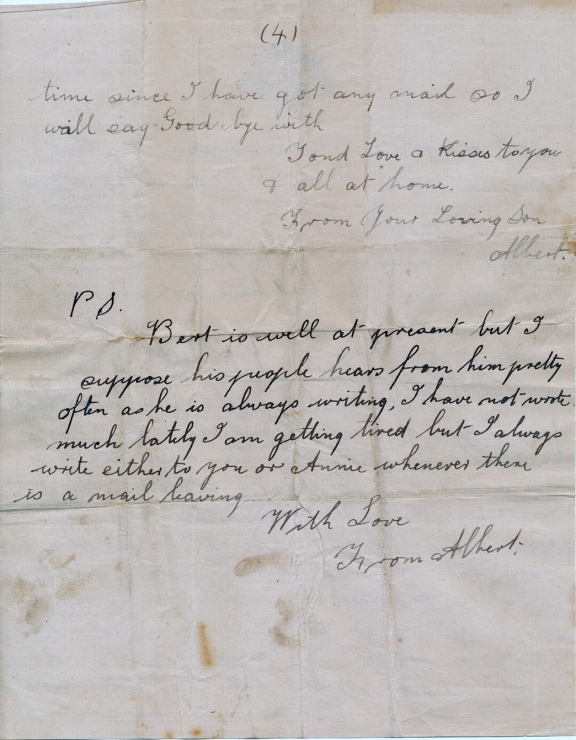 (4)
time since I have got any mail so I
will say Good bye with
Fond Love & Kisses to you
& all at home.
From Your Loving Son
Albert.
P S.
Bert is well at present but I
suppose his people hears from him pretty
often as he is always writing, I have not wrote
much lately I am getting tired but I always
write either to you or Annie whenever there
is a mail leaving
With Love
From Albert.